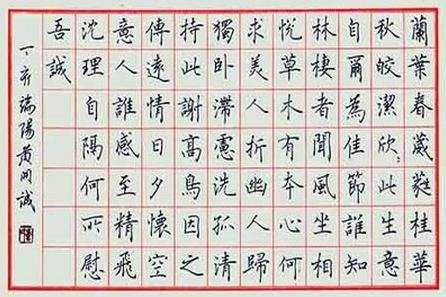 蘭葉春葳蕤桂華
秋皎潔欣此生意
自爾為佳節誰知
林棲者聞風坐相
悅草木有本心何
求美人折幽人歸
獨卧滯慮洗孤清
持此謝高鳥因之
傳遠情日夕懷空
意人誰感至精飛
沈理自隔何所慰
吾誠
丁亥端陽黄誠